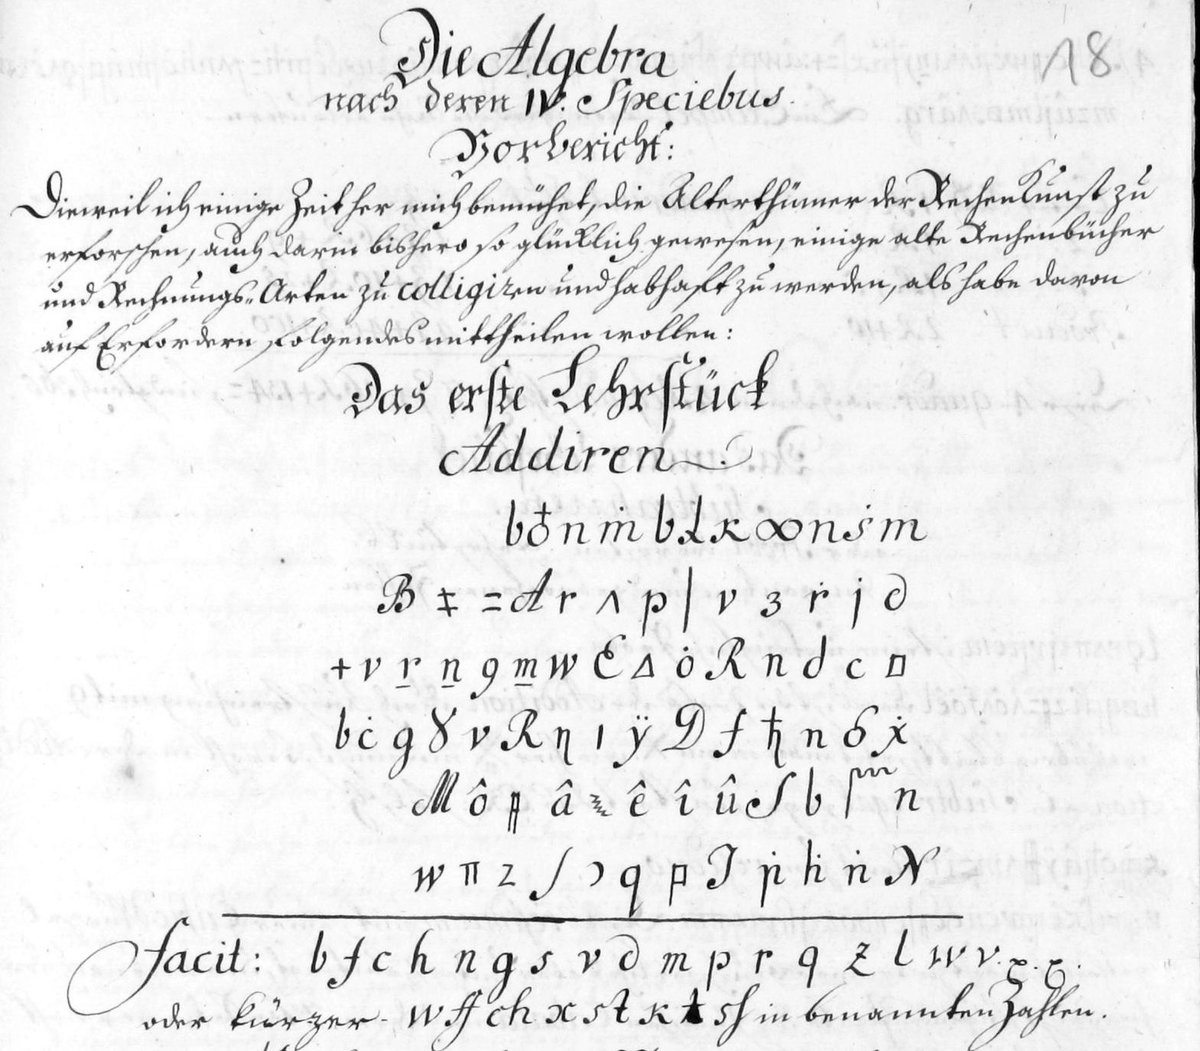 18
Die Algebra
nach deren IV. Speciebus.
Vorbericht:
Dieweil ich einige Zeit her mich bemühet, die Alterthümer der Rechen Kunst zu
erforschen, auch darin bishero so glücklich gewesen, einige alte Rechenbücher
und Rechnungs-Arten zu colligiren und habhaft zu werden, als habe davon
auf Erfordern folgendes mittheilen wollen:
Das erste Lehrstück
Addiren.
b n m b k ∞ n ṡ m
B ‡ = A r ʌ p | v 3 ṙ j ∂
+ v r n g m w E Δ ȯ R n d c □
b ċ g 8 v R η ı ÿ D f ħ n δ ẋ
M ô â ê î û S b n
w π z ʃ ɔ q p J ṗ ḣ ṅ N
facit: b f c h n g s v ∂ m p r q z l w v.
oder kürzer - w ff c h x s t k t sh in benannten Zahlen.